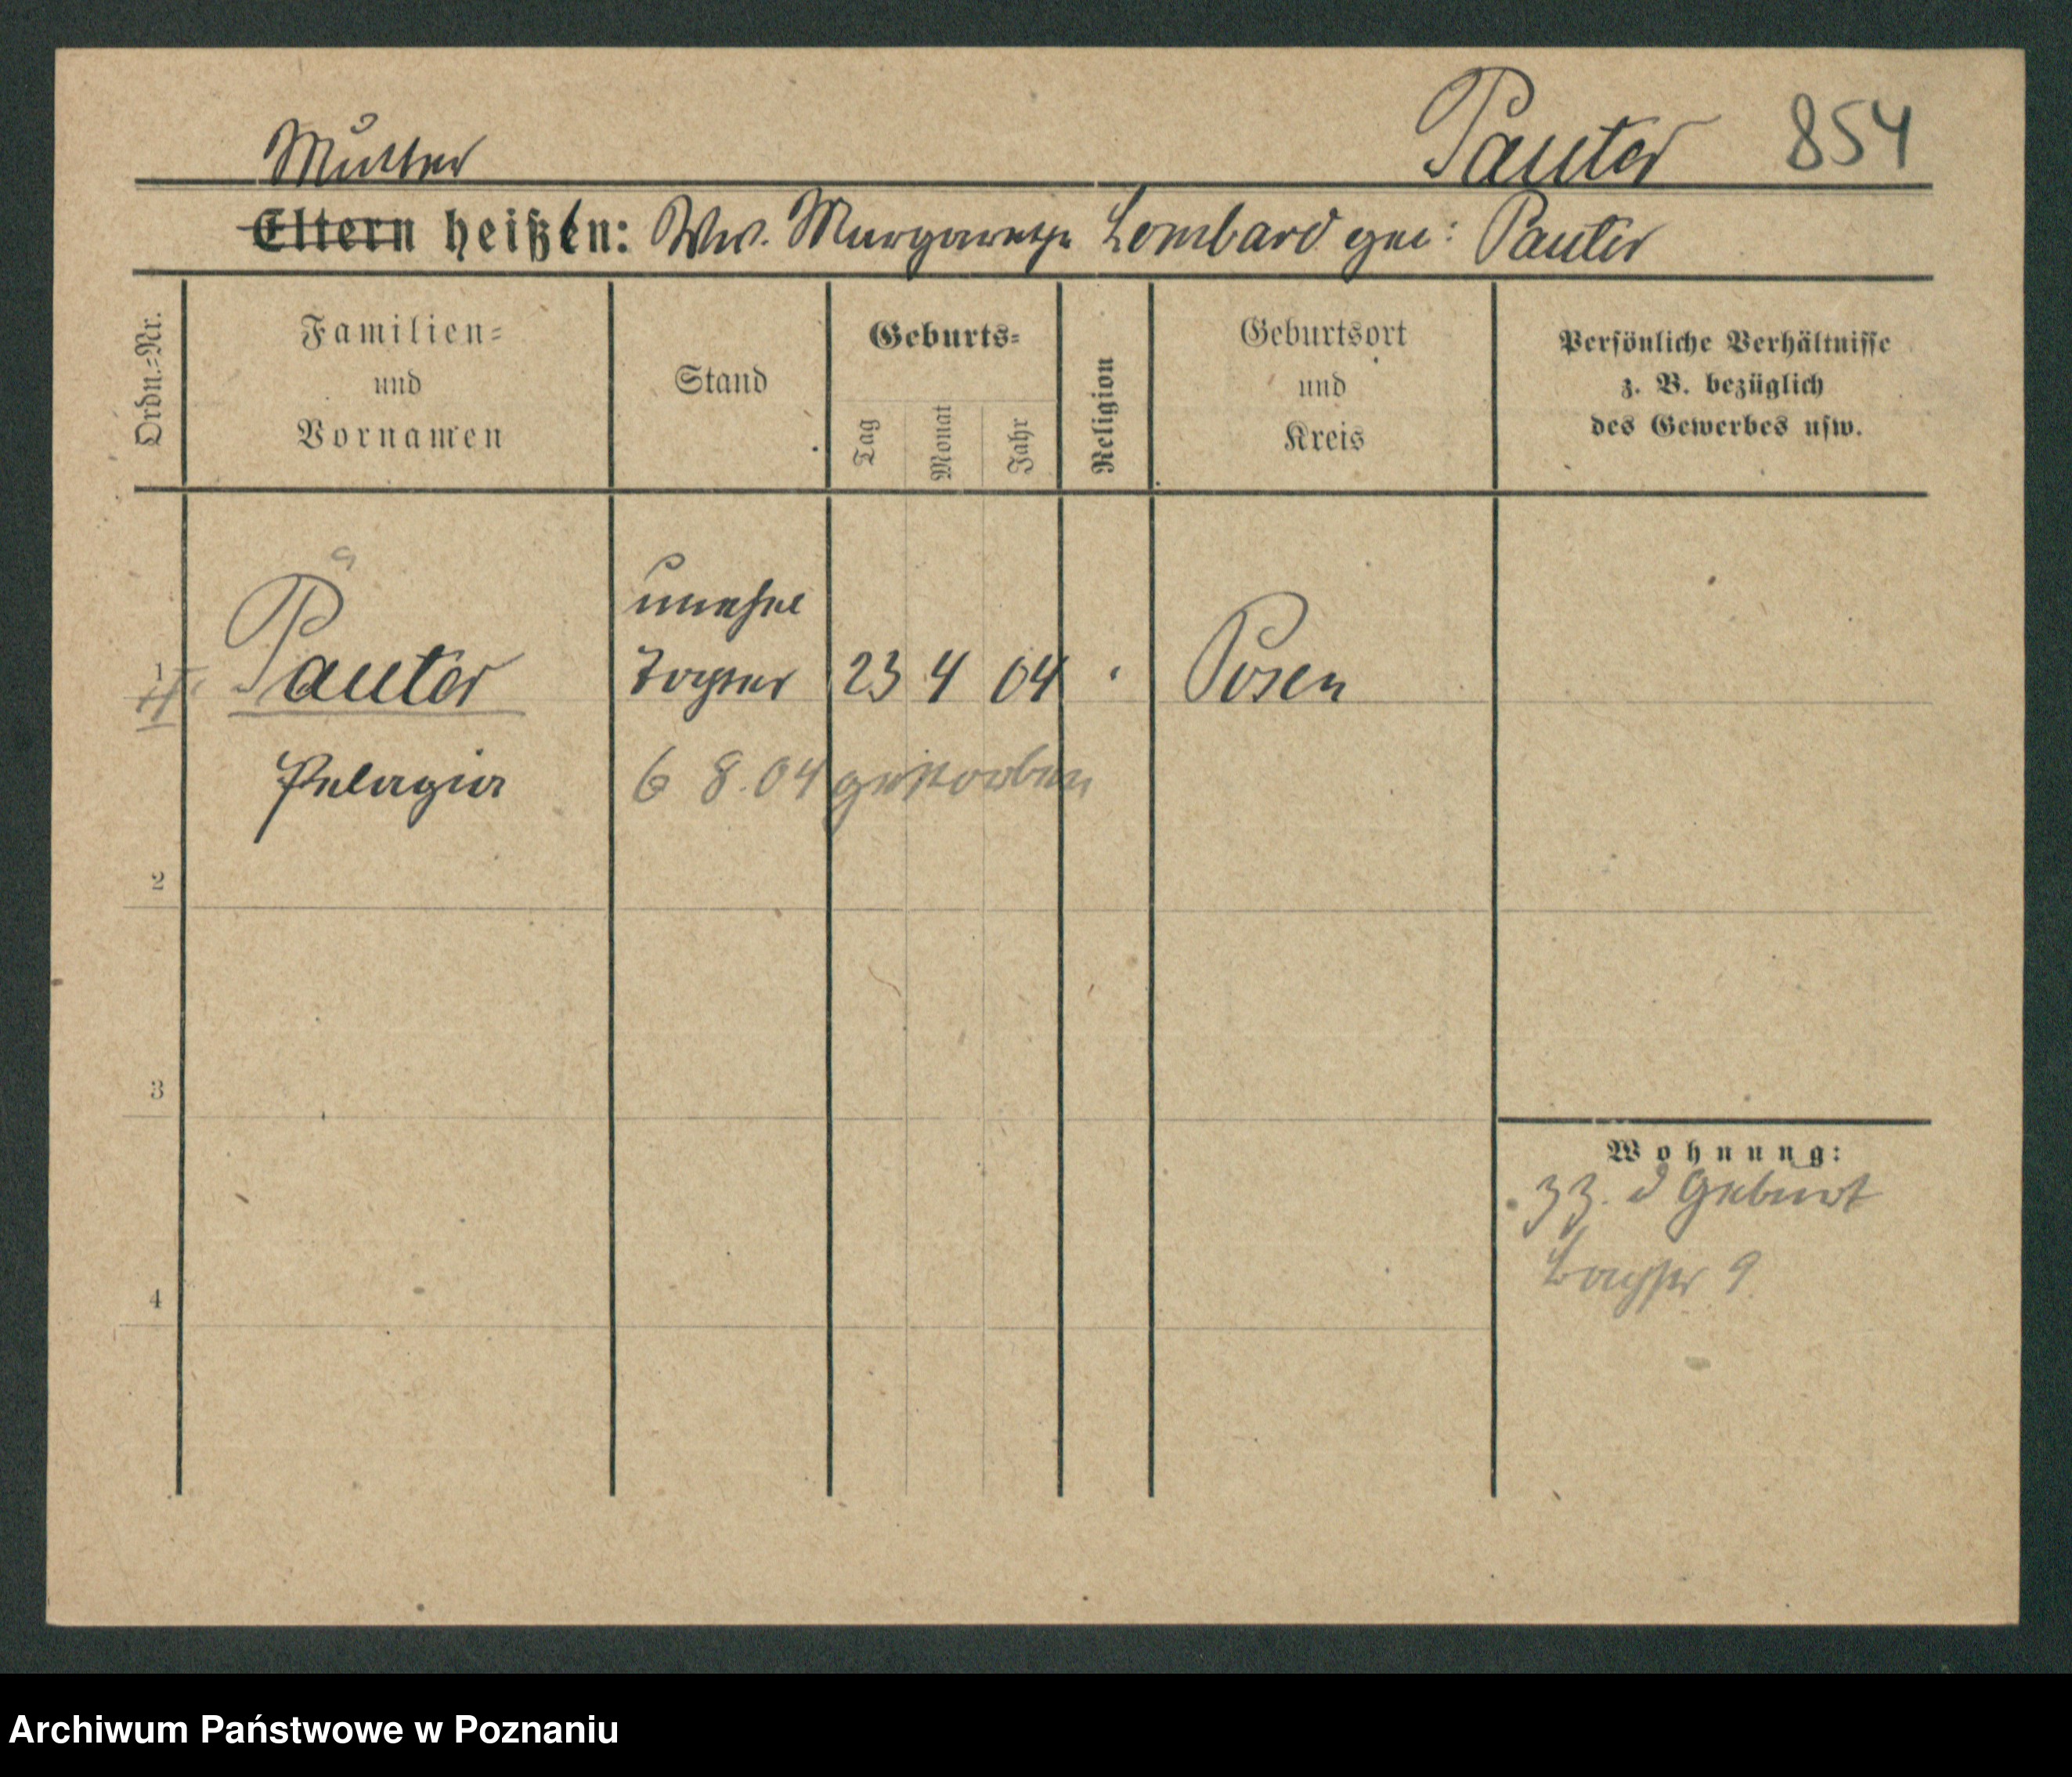 Pauter 854
Mutter
Eltern heißen: Ww. Margarethe Lombard geb: Pauter
Ordn.=Nr.
Familien=
und
Vornamen
Stand
Geburts=
Tag
Monat
Jahr
Religion
Geburtsort
und
Kreis
Persönliche Verhältnisse
z. B. bezüglich
des Gewerbes usw.
1
Pauter
unehel
Tochter
23 4 04
Posen
Pelagia
6 8. 04 gestorben
2
3
4
Wohnung:
zZ. d Geburt
9
Archiwum Państwowe w Poznaniu